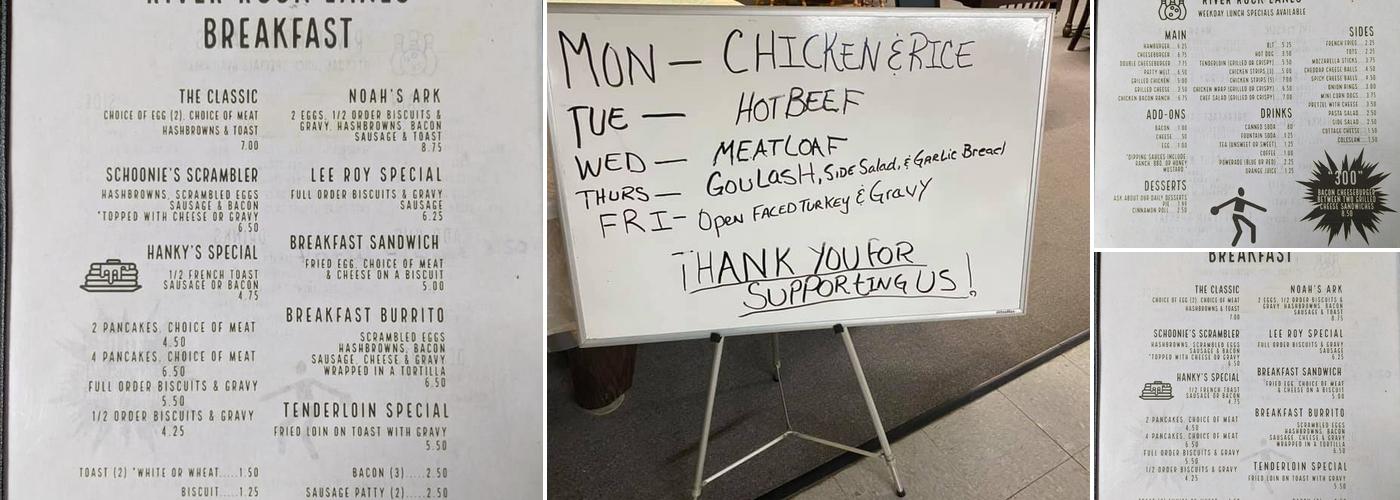 RIVER ROCK LANES
BREAKFAST
THE CLASSIC
CHOICE OF EGG (2), CHOICE OF MEAT
HASHBROWNS & TOAST
7.00
SCHOONIE'S SCRAMBLER
HASHBROWNS, SCRAMBLED EGGS
SAUSAGE & BACON
*TOPPED WITH CHEESE OR GRAVY
6.50
HANKY'S SPECIAL
1/2 FRENCH TOAST
SAUSAGE OR BACON
4.75
2 PANCAKES, CHOICE OF MEAT
4.50
4 PANCAKES, CHOICE OF MEAT
6.50
FULL ORDER BISCUITS & GRAVY
5.50
1/2 ORDER BISCUITS & GRAVY
4.25
TOAST (2) *WHITE OR WHEAT.....1.50
BISCUIT.....1.25
NOAH'S ARK
2 EGGS, 1/2 ORDER BISCUITS &
GRAVY, HASHBROWNS, BACON
SAUSAGE & TOAST
8.75
LEE ROY SPECIAL
FULL ORDER BISCUITS & GRAVY
SAUSAGE
6.25
BREAKFAST SANDWICH
FRIED EGG, CHOICE OF MEAT
& CHEESE ON A BISCUIT
5.00
BREAKFAST BURRITO
SCRAMBLED EGGS
HASHBROWNS, BACON
SAUSAGE, CHEESE & GRAVY
WRAPPED IN A TORTILLA
6.50
TENDERLOIN SPECIAL
FRIED LOIN ON TOAST WITH GRAVY
5.50
BACON (3).....2.50
SAUSAGE PATTY (2).....2.50
MON - CHICKEN & RICE
TUE - HOT BEEF
WED - MEATLOAF
THURS - GOULASH, SIDE SALAD, & GARLIC BREAD
FRI - OPEN FACED TURKEY & GRAVY
THANK YOU FOR
SUPPORTING US!
RIVER ROCK LANES
WEEKDAY LUNCH SPECIALS AVAILABLE
MAIN
HAMBURGER...6.25
CHEESEBURGER...6.75
DOUBLE CHEESEBURGER...7.75
PATTY MELT...6.50
GRILLED CHICKEN...5.00
GRILLED CHEESE...3.50
CHICKEN BACON RANCH...6.75
BLT...5.25
HOT DOG...3.50
TENDERLOIN (GRILLED OR CRISPY)...5.50
CHICKEN STRIPS (3)...5.00
CHICKEN STRIPS (5)...7.00
CHICKEN WRAP (GRILLED OR CRISPY)...6.50
CHEF SALAD (GRILLED OR CRISPY)...7.00
SIDES
FRENCH FRIES...2.25
TOTS...2.25
MOZZARELLA STICKS...3.75
CHEDDAR CHEESE BALLS...4.50
SPICY CHEESE BALLS...4.50
ONION RINGS...3.00
MINI CORN DOGS...3.75
PRETZEL WITH CHEESE...3.50
PASTA SALAD...2.50
SIDE SALAD...2.50
COTTAGE CHEESE...1.50
COLESLAW...1.50
ADD-ONS
BACON...1.00
CHEESE...50
EGG...1.00
*DIPPING SAUCES INCLUDE
RANCH, BBQ, OR HONEY
MUSTARD*
DRINKS
CANNED SODA...60
FOUNTAIN SODA...1.25
TEA (UNSWEET OR SWEET)...1.25
COFFEE...1.00
POWERADE (BLUE OR RED)...2.25
ORANGE JUICE...1.25
DESSERTS
ASK ABOUT OUR DAILY DESSERTS
PIE
CINNAMON ROLL...2.50
"300"
BACON CHEESEBURGER
BETWEEN TWO GRILLED
CHEESE SANDWICHES
8.50
BREAKFAST
THE CLASSIC
CHOICE OF EGG (2), CHOICE OF MEAT
HASHBROWNS & TOAST
7.00
SCHOONIE'S SCRAMBLER
HASHBROWNS, SCRAMBLED EGGS
SAUSAGE & BACON
*TOPPED WITH CHEESE OR GRAVY
6.50
HANKY'S SPECIAL
1/2 FRENCH TOAST
SAUSAGE OR BACON
4.75
2 PANCAKES, CHOICE OF MEAT
4.50
4 PANCAKES, CHOICE OF MEAT
6.50
FULL ORDER BISCUITS & GRAVY
5.50
1/2 ORDER BISCUITS & GRAVY
4.25
NOAH'S ARK
2 EGGS, 1/2 ORDER BISCUITS &
GRAVY, HASHBROWNS, BACON
SAUSAGE & TOAST
8.75
LEE ROY SPECIAL
FULL ORDER BISCUITS & GRAVY
SAUSAGE
6.25
BREAKFAST SANDWICH
FRIED EGG, CHOICE OF MEAT
& CHEESE ON A BISCUIT
5.00
BREAKFAST BURRITO
SCRAMBLED EGGS
HASHBROWNS, BACON
SAUSAGE, CHEESE & GRAVY
WRAPPED IN A TORTILLA
6.50
TENDERLOIN SPECIAL
FRIED LOIN ON TOAST WITH GRAVY
5.50